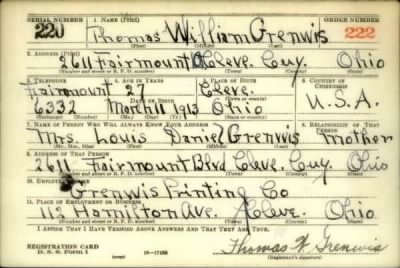 SERIAL NUMBER 1. NAME (Print) ORDER NUMBER
220 Thomas William Grenwis 222
(First) (Middle) (Last)
2. ADDRESS (Print)
2611 Fairmount Cleve. Cuy. Ohio
(Number and street or R. F. D. number) (Town) (County) (State)
3. TELEPHONE 4. AGE IN YEARS 5. PLACE OF BIRTH 6. COUNTRY OF CITIZENSHIP
Fairmount 27 Cleve.
DATE OF BIRTH (Town or county)
6332 March 11 1913 Ohio U.S.A.
(Mo.) (Day) (Yr.) (State or country)
7. NAME OF PERSON WHO WILL ALWAYS KNOW YOUR ADDRESS 8. RELATIONSHIP OF THAT PERSON
Mrs Louis Daniel Grenwis Mother
(Mr., Mrs., Miss) (First) (Middle) (Last)
9. ADDRESS OF THAT PERSON
2611 Fairmount Blvd Cleve. Cuy. Ohio
(Number and street or R. F. D. number) (Town) (County) (State)
10. EMPLOYER'S NAME
Grenwis Printing Co
11. PLACE OF EMPLOYMENT OR BUSINESS
112 Hamilton Ave. Cleve. Ohio
(Number and street or R. F. D. number) (Town) (County) (State)
I AFFIRM THAT I HAVE VERIFIED ABOVE ANSWERS AND THAT THEY ARE TRUE.
REGISTRATION CARD
D. S. S. Form 1 16—17105 Thomas W. Grenwis
(Registrant's signature)